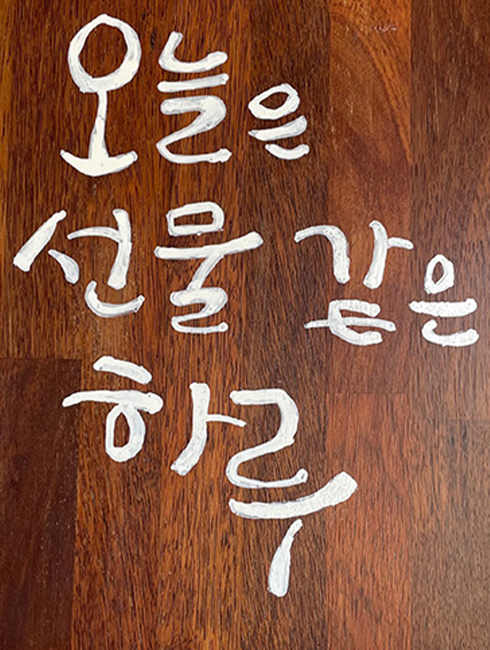 오늘은
선물 같은
하루